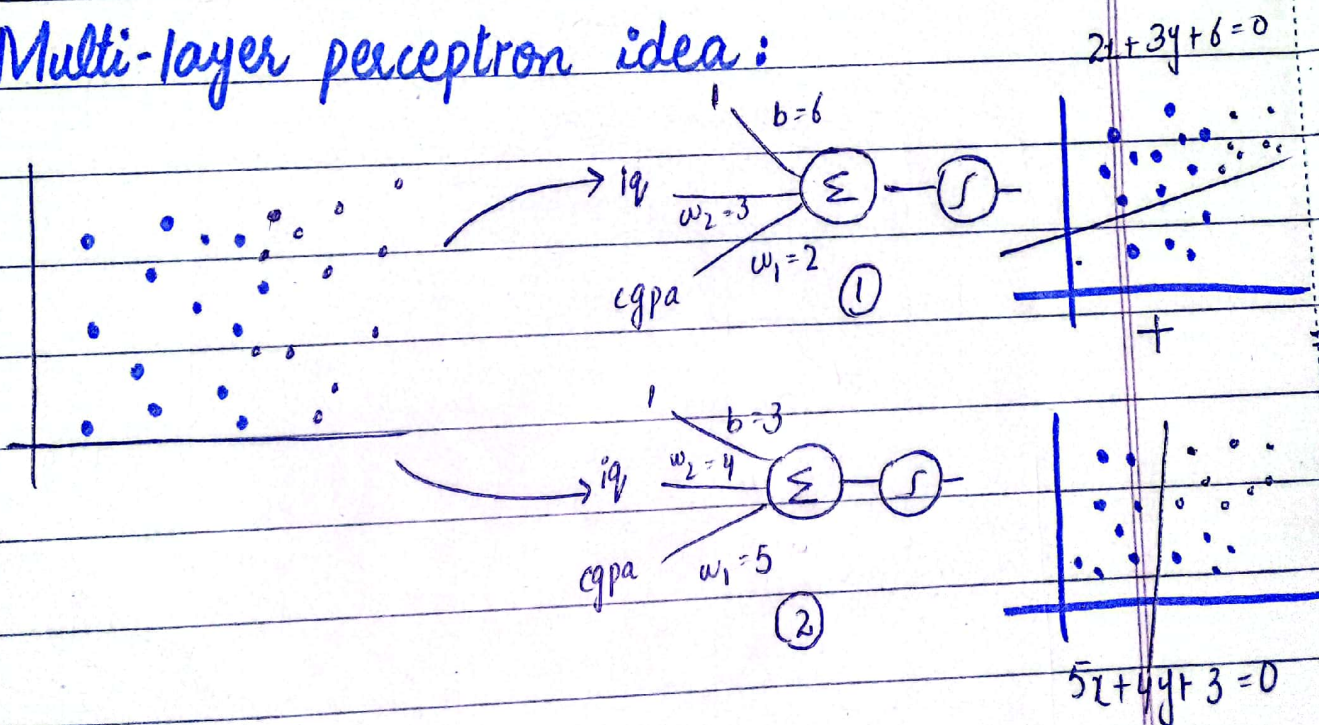 Multi-layer perceptron idea:
2x+3y+6=0
1
b=6
iq
w₂=3
Σ
∫
w₁=2
cgpa
①
+
1
b=3
iq
w₂=4
Σ
∫
cgpa
w₁=5
②
5x+4y+3=0